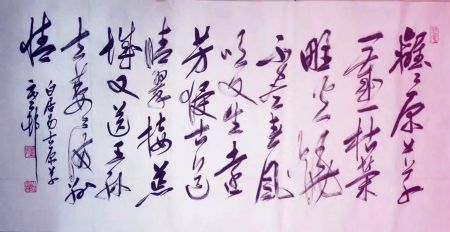 離々原上草
一歲一枯榮
野火燒
不尽春風
吹又生遠
芳侵古道
晴翠接荒
城又送王孫
去萋々滿別
情
白居易古原草